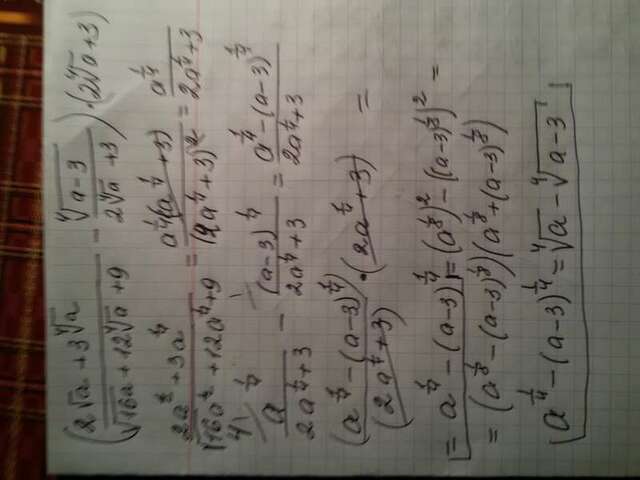 (2√a + 3∜a / √16a + 12∜a + 9 − ∜a−3 / 2∜a + 3) · (2∜a + 3)
2a^½ + 3a^¼ / √16a^½ + 12a^¼ + 9 = a^¼(2a^¼ + 3) / (2a^¼ + 3)² = a^¼ / 2a^¼ + 3
4) a^¼ / 2a^¼ + 3 − (a−3)^¼ / 2a^¼ + 3 = a^¼ − (a−3)^¼ / 2a^¼ + 3
(a^¼ − (a−3)^¼) / (2a^¼ + 3) · (2a^¼ + 3) =
= a^¼ − (a−3)^¼ = (a^⅛)² − ((a−3)^⅛)² =
= (a^⅛ − (a−3)^⅛)(a^⅛ + (a−3)^⅛)
a^¼ − (a−3)^¼ = ∜a − ∜a−3